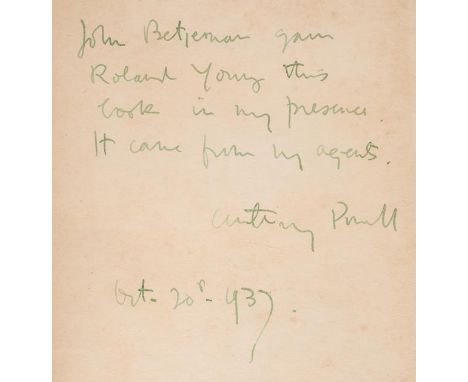 John Betjeman gave
Roland Young this
book in my presence.
It came from my agents.
Anthony Powell
Oct- 20s- 1937.